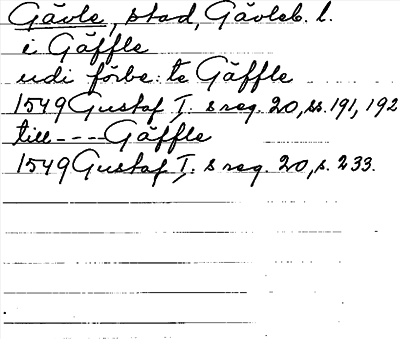 Gävle, stad, Gävleb. l.
i Gäffle
udi förbe:te Gäffle
1549 Gustaf I:s reg. 20, ss. 191, 192
till---- Gäffle
1549 Gustaf I:s reg. 20, s. 233.